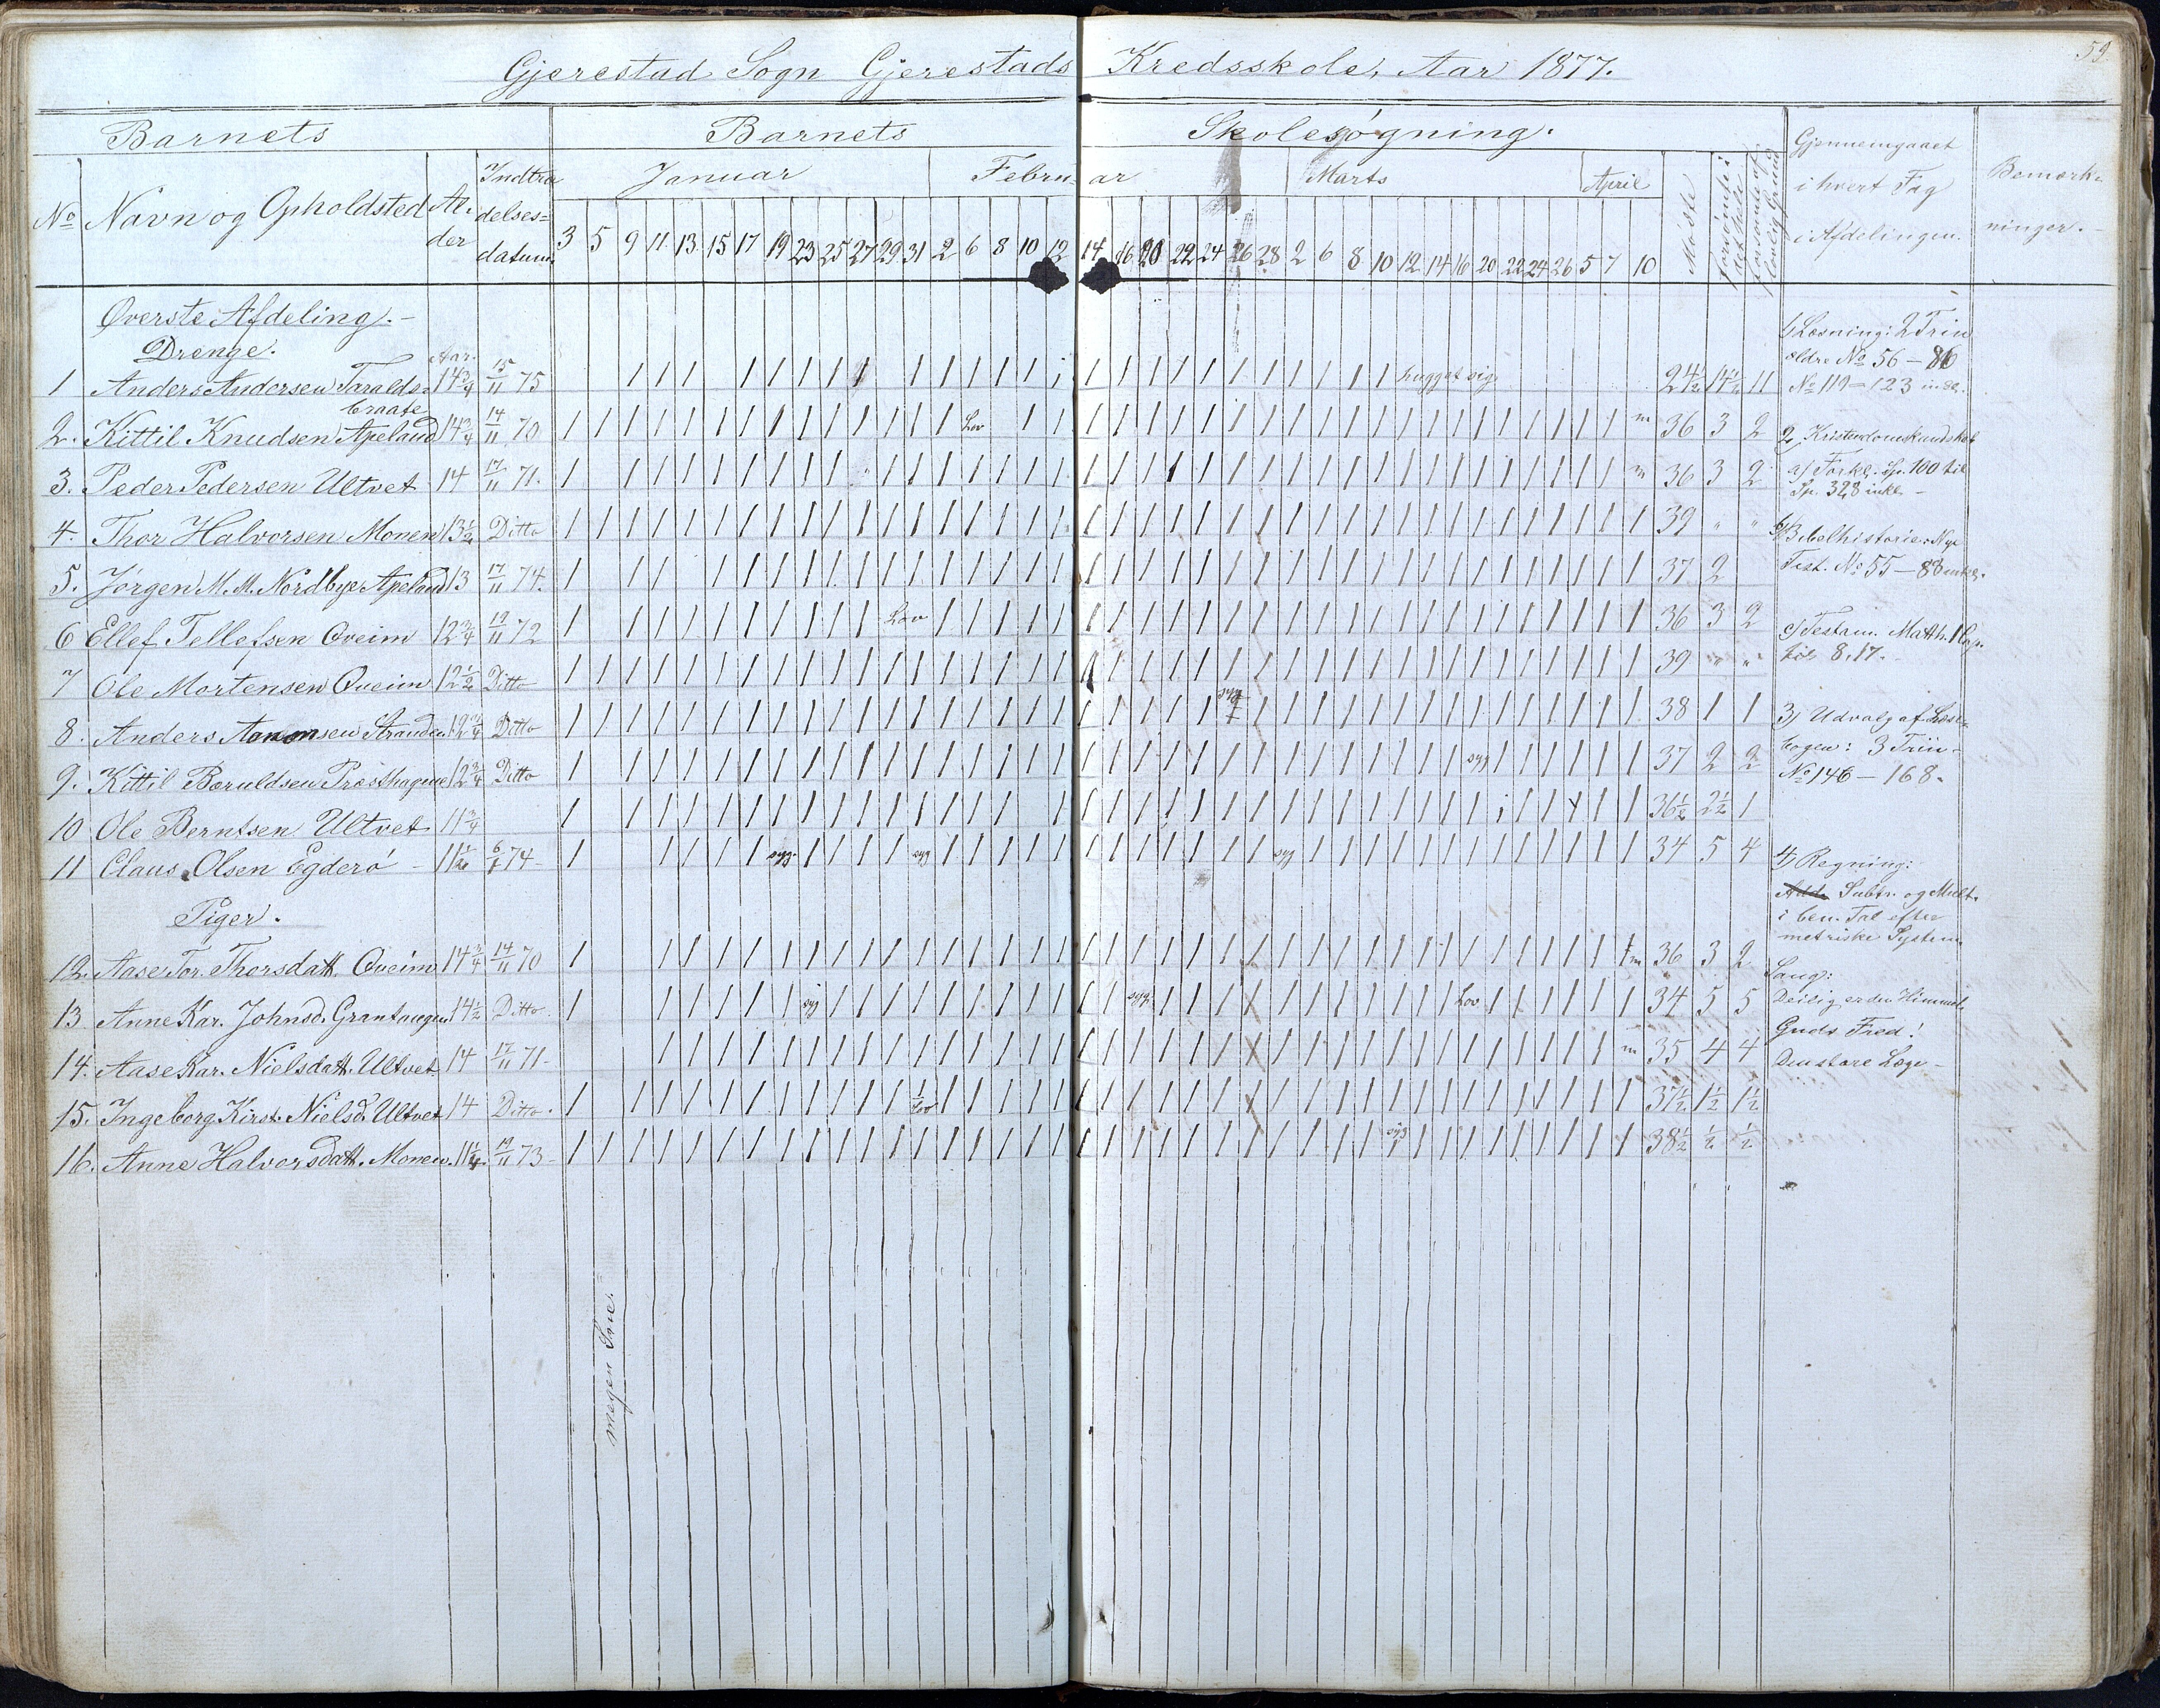 59
Gjerestad Sogn Gjerestads Kredsskole, Aar 1877.
Barnets Barnets Skolesøgning.
No Navn og Opholdsted Al-der Indtrædelses=datum.
Januar Februar Marts April
3 5 9 11 13 15 17 19 23 25 27 29 31 2 6 8 10 12 14 16 20 22 24 26 28 2 6 8 10 12 14 16 20 22 24 26 5 7 10
Møste forsømte i det hele forsømte af lovlig Grund
Gjennemgaaet i hvert Fag i Afdelingen.
Bemærk=ninger.
Øverste Afdeling.-
Drenge. Aar.
1 Anders Andersen Taralds-braate 14 3/4 15/11 75 hugget sig 24 1/2 14 1/2 11
2. Kittil Knudsen Apeland 14 3/4 14/11 70 Lov m 36 3 2
3. Peder Pedersen Ultvet 14 17/11 71. m 36 3 2
4. Thor Halvorsen Monen 13 1/2 Ditto 39 " "
5. Jørgen M. M. Nordbye Apeland 13 17/11 74. 37 2
6 Ellef Tellefsen Qveim 12 3/4 19/11 72 Lov 36 3 2
7 Ole Mortensen Qveim 12 1/2 Ditto 39 " "
8. Anders Aanonsen Stranden 12 3/4 Ditto syg 38 1 1
9. Kittil Bæruldsen Præsthagne 12 3/4 Ditto syg 37 2 2
10 Ole Berntsen Ultvet 11 3/4 36 1/2 2 1/2 1
11 Claus Olsen Egderø - 11 1/2 74- syg. syg syg 34 5 4
Piger.
12. Aase Tor. Thorsdatt. Qveim 14 3/4 14/11 70 m 36 3 2
13 Anne Kar. Johnsd. Grantangen 14 1/2 Ditto. syg syg. Lov 34 5 5
14. Aase Kar. Nielsdatt. Ultvet 14 17/11 71- m 35 4 4
15. Ingeborg Kirst. Nielsd. Ultvet 14 Ditto. Lov 37 1/2 1 1/2 1 1/2
16. Anne Halvorsdatt. Monen. 11 1/4 19/11 73- syg 38 1/2 1/2 1/2
megen Sne.
1, Læsning: 2 Trin
ældre No 56 - 86
No 119 - 123 inkl.
2, Kristendomskundskab
a) Forkl. Sp. 100 til
Sp. 328 inkl. -
b) Bibelhistorie: Nye
Test. No 55 - 88 inkl.
c) Testam. Matth. 1 Cap.
til 8,17.
3, Udvalg af Læse-
bogen: 3 Trin-
No 146 - 168.
4, Regning:
Add. Subtr. og Mult.
i ben. Tal efter
metriske System.
Sang:
Deilig er den Himmel.
Guds Fred!
Den store Læge -